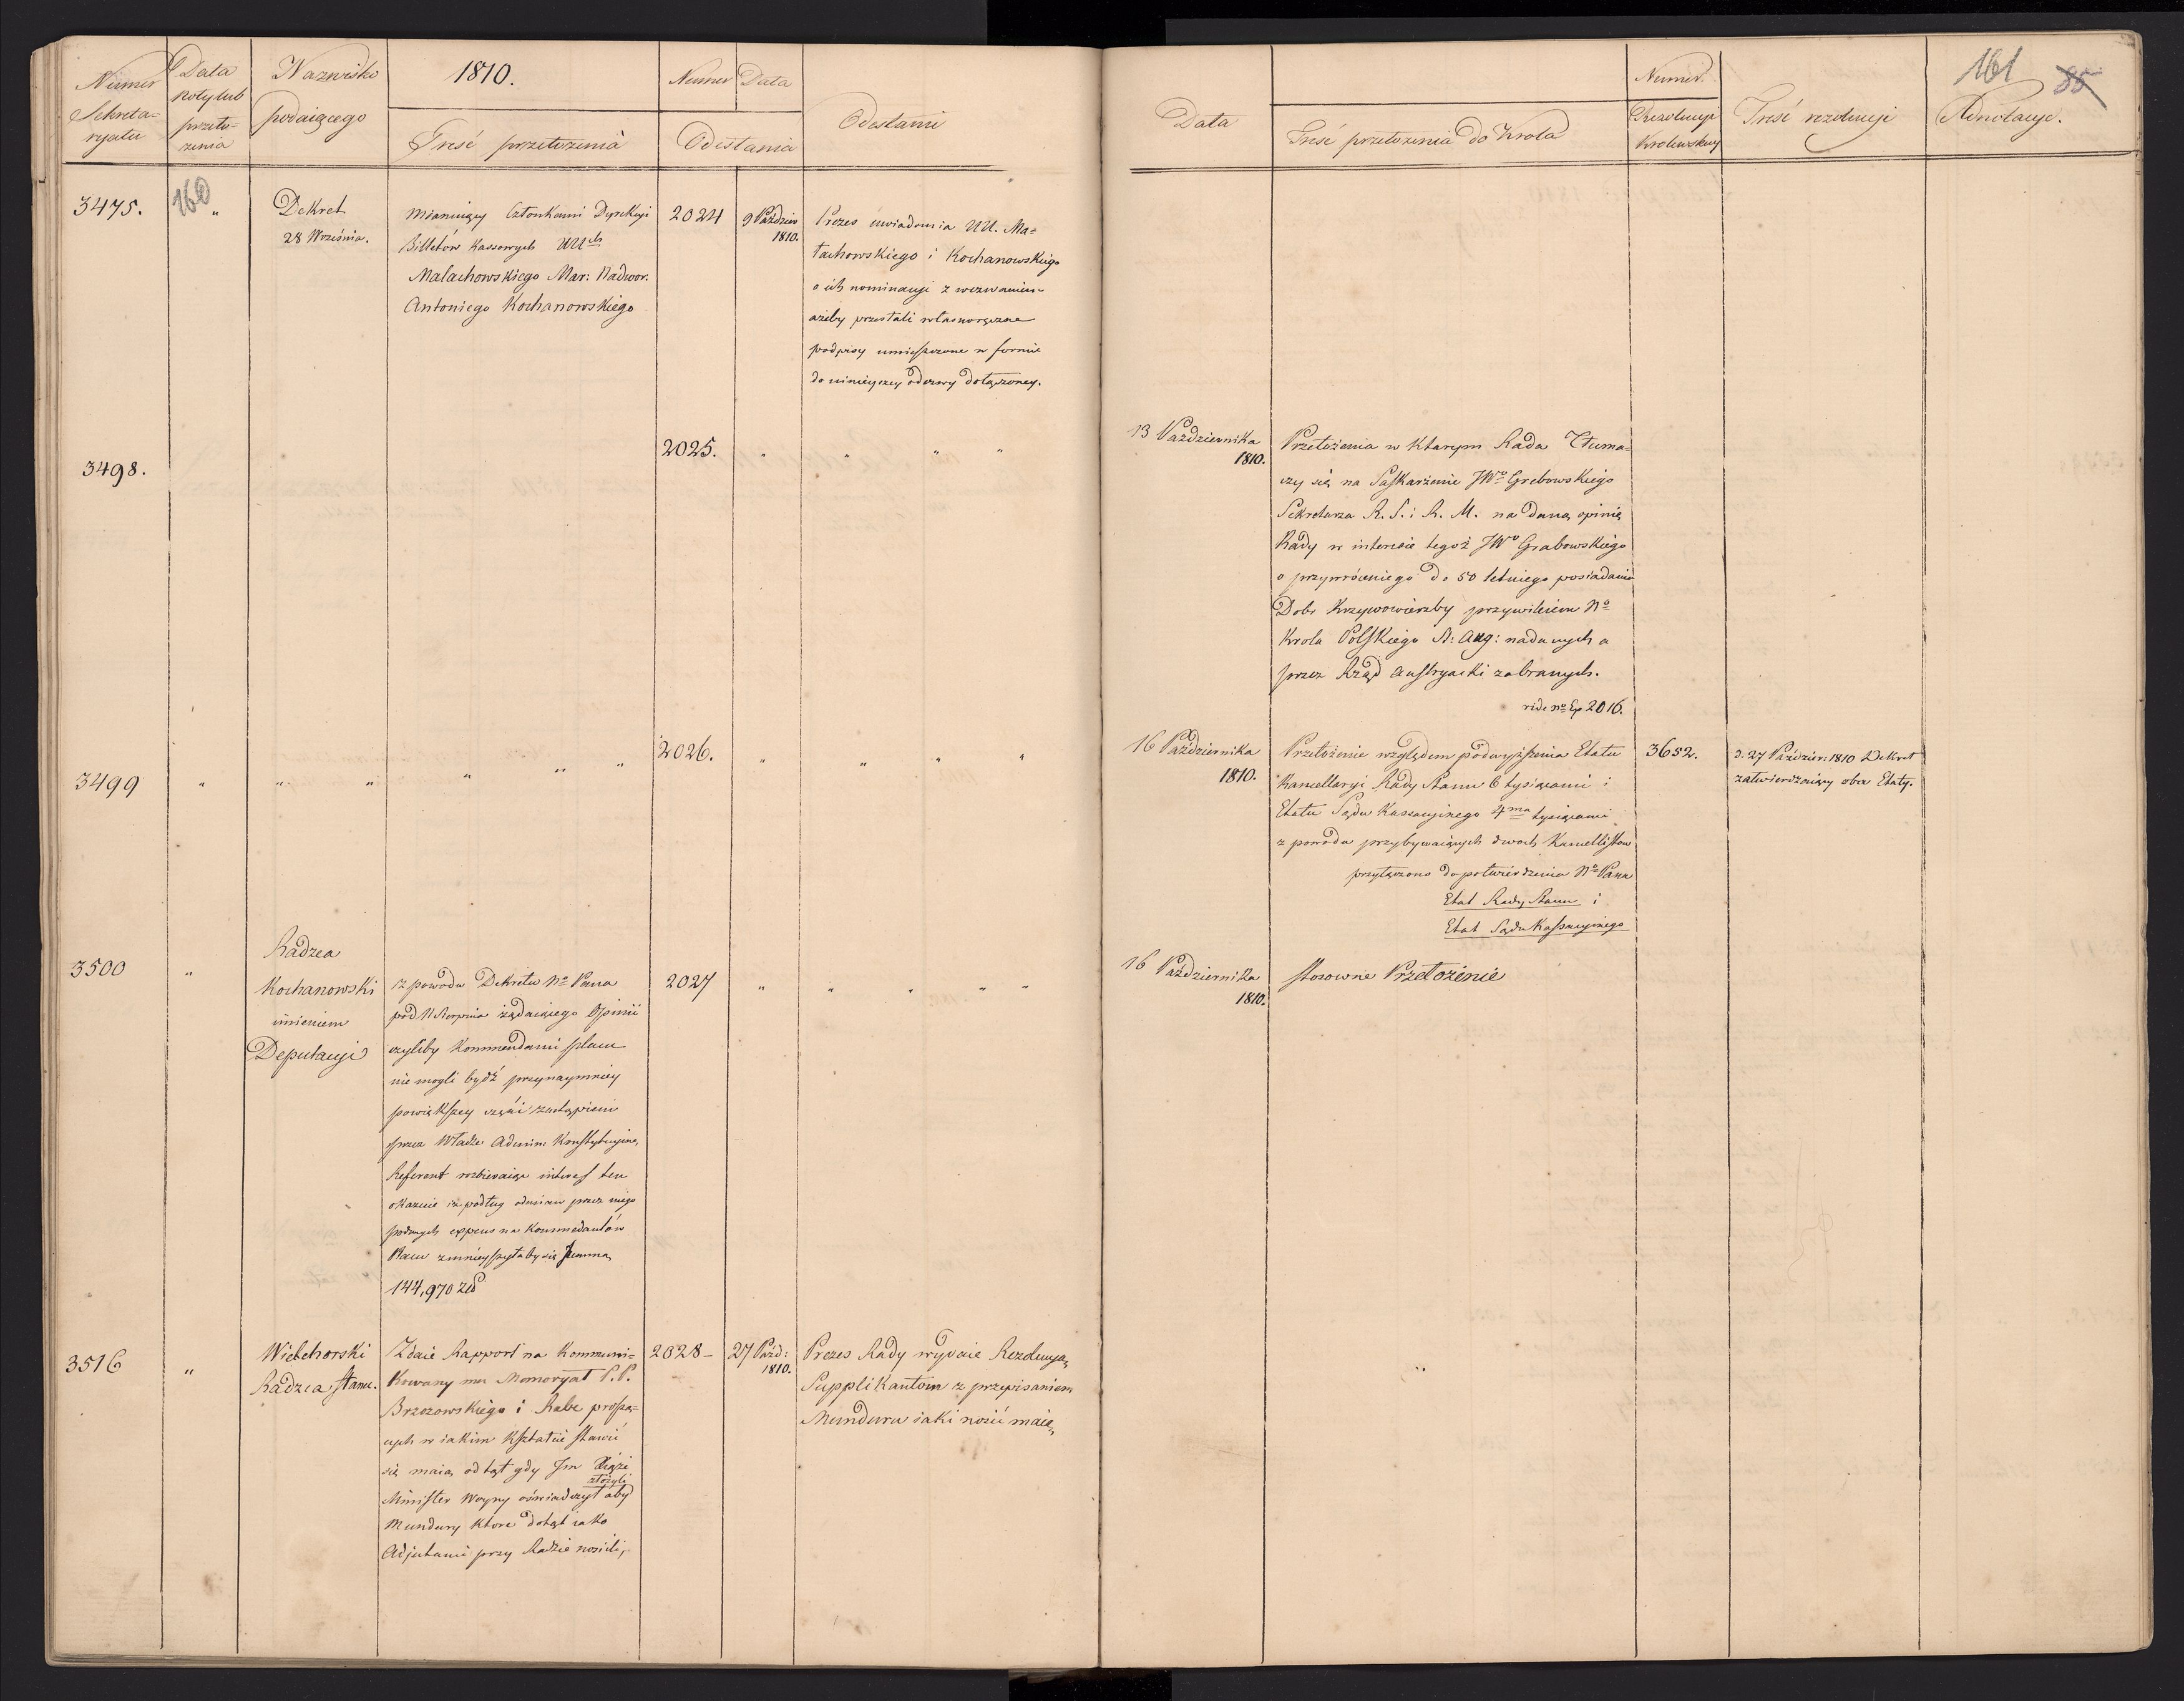 Numer
Sekreta-
ryatu
Data
Noty lub
przeło-
żenia
Nazwisko
podaiącego
1810.
Treść przełożenia
Numer Data
Odesłania
Odesłanie
Data
Treść przełożenia do Krola
Numer.
Rezolucyi
Krolewskiey
Treść rezolucyi
Adnotacye.
161
85
3475.
160
"
Dekret
28 Września.
Mianuiący Członkami Dyrekcyi
Billetów Kassowych UUch
Małachowskiego Mar: Nadwor.
Antoniego Kochanowskiego
2024
9 Paździer
1810.
Prezes uwiadomia UU. Ma=
łachowskiego i Kochanowskiego
o ich nominacyi z wezwaniem
ażeby przesłali własnoręczne
podpisy umieszczone w formie
do ninieyszey odezwy dołączoney.
3498.
2025.
" " " "
13 Października
1810.
Przełożenia w Ktorym Rada Tłuma=
czy się na Zaskarżenie JWo Grabowskiego
Sekretarza R. S. i R. M. na daną opinię
Rady w interesie tegoż JWo Grabowskiego
o przywrócenie go do 50 letniego posiadania
Dobr Krzywowierzby przywileiem No
Krola Polskiego St: Aug: nadanych a
przez Rząd Austryacki zabranych.
vide No Ex 2016.
3499
" " " " " "
2026.
" " " "
16 Października
1810.
Przełożenie względem podwyższenia Etatu
Kancellaryi Rady Stanu 6 tysiącami i
Etatu Sądu Kassacyinego 4ma tysiącami
z powodu przybywaiących dwoch Kancellistow
przyłączono do potwierdzenia No Pana
Etat Rady Stanu i
Etat Sądu Kassacyinego
3652.
d. 27 Paździer: 1810 Dekret
zatwierdzaiący oba Etaty.
3500
"
Radzca
Kochanowski
imieniem
Deputacyi
z powodu Dekretu No Pana
pod 11 Sierpnia żądaiącego Opinii
czyliby Kommendanci placu
nie mogli bydź przynaymniey
powiększey części zastąpieni
przez Władze Admin: Konstytucyine,
Referent rozbieraiąc interes ten
okazuie iż podług odmian przez niego
podanych expens na Kommendantów
Placu zmnieyszyłaby się summa,
144,970 Złp
2027
" " " " "
16 Października
1810.
stosowne Przełożenie
3516
"
Wielehorski
Radzca Stanu.
Zdaie Rapport na Kommuni=
kowany mu Memoryał P.P.
Brzozowskiego i Rabe proszą=
cych w iakim Kształcie stawić
się maią, odtąt gdy Jm Xiąże
Minister Woyny oświadczył aby
złożyli
Mundury ktore dotąt iako
Adjutanci przy Radzie nosili,
2028 -
27 Paźd:
1810.
Prezes Rady wydaie Rezolucyą,
Supplikantom z przepisaniem
Munduru iaki nosić maią,